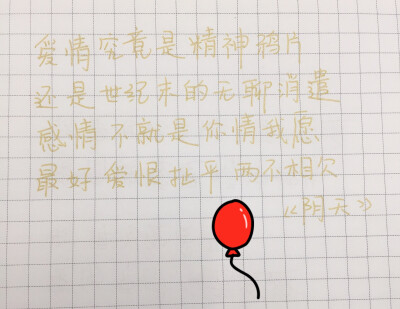 爱情究竟是精神鸦片
还是世纪末的无聊消遣
感情不就是你情我愿
最好爱恨扯平两不相欠
《阴天》